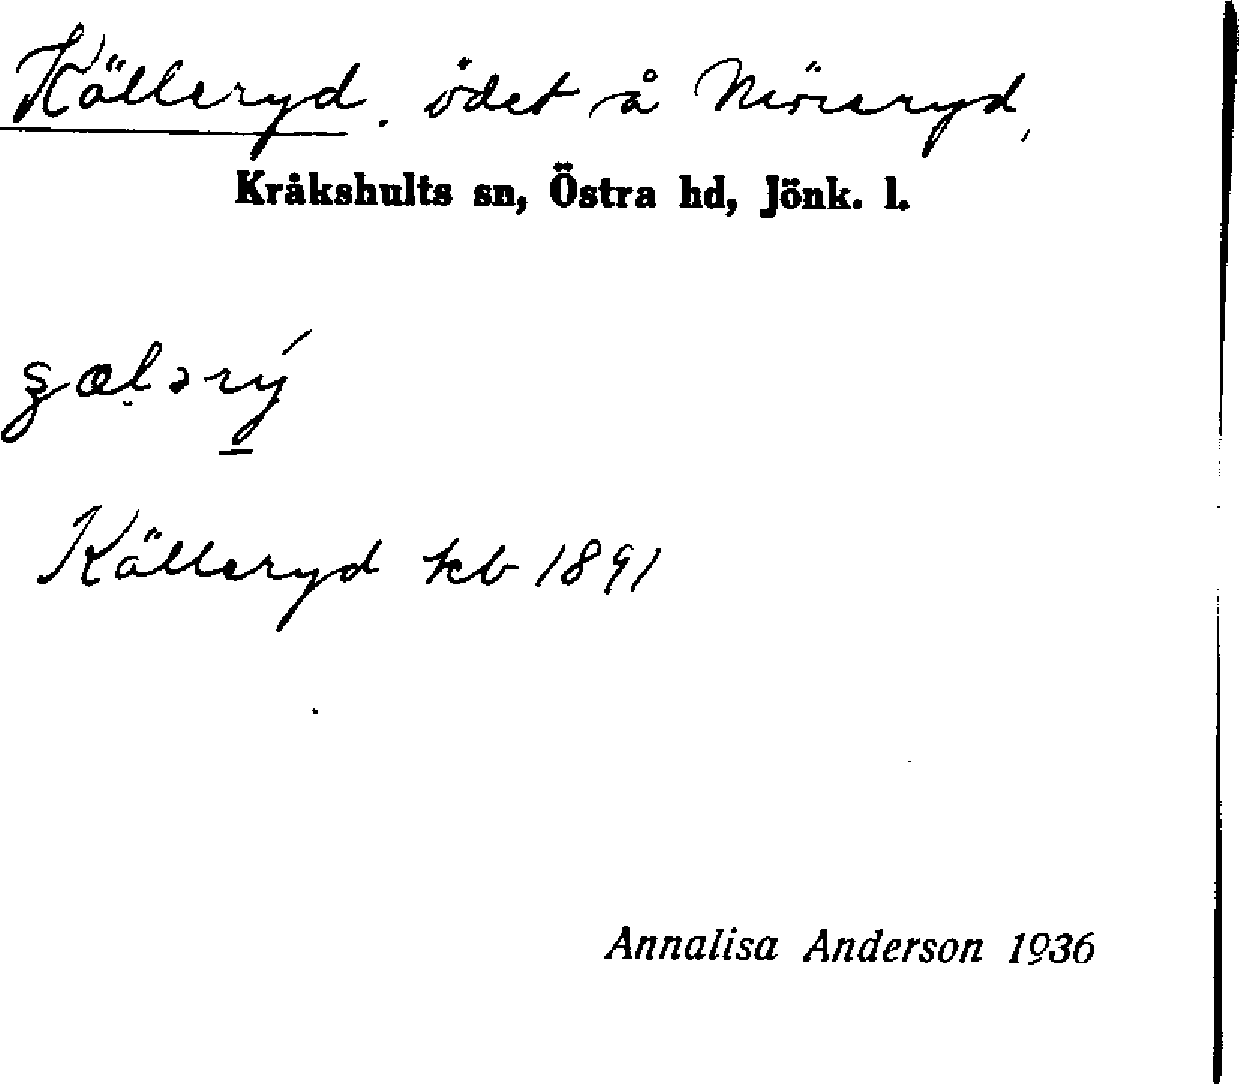 Källeryd. ödet å Möreryd,
Kråkshults sn, Östra hd, Jönk. l.
Källeryd kb 1891
Annalisa Anderson 1936